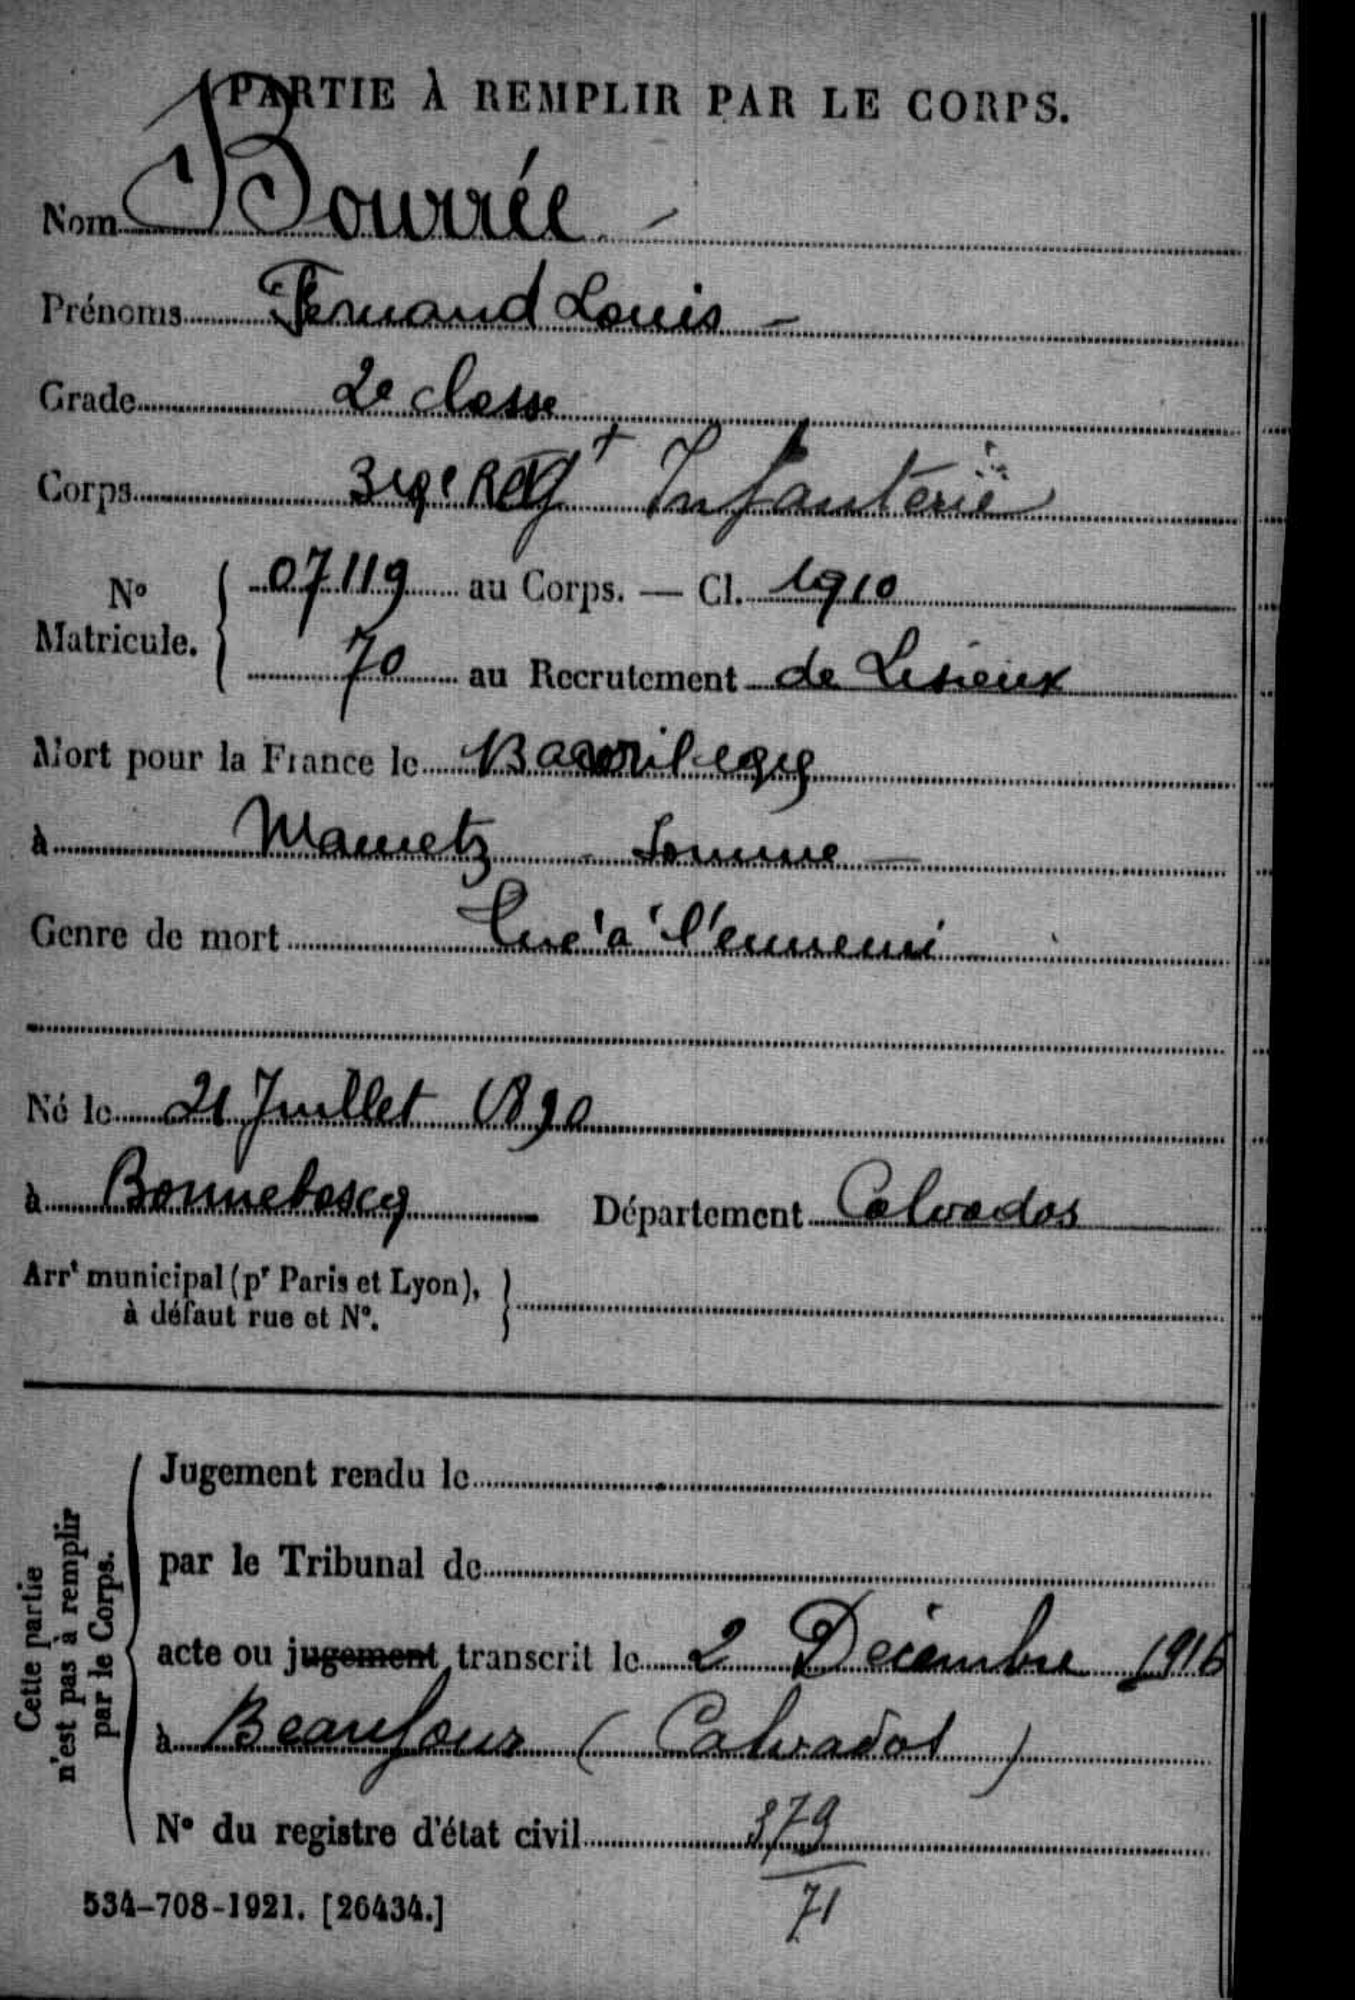 PARTIE À REMPLIR PAR LE CORPS.
Nom Bourrée
Prénoms Fernand Louis
Grade 2e classe
Corps Regt Infanterie
No Matricule. { 07119 au Corps. — Cl. 1910
70 au Recrutement de Lisieux
Mort pour la France le avril
à Mametz Somme
Genre de mort Tué à l'ennemi
Né le 21 Juillet 1890
à Bonneboscq Département Calvados
Arrt municipal (pr Paris et Lyon),
à défaut rue et No.
Cette partie
n'est pas à remplir
par le Corps.
Jugement rendu le
par le Tribunal de
acte ou jugement transcrit le 2 Décembre 1916
à Beaufour (Calvados)
No du registre d'état civil 379
71
534-708-1921. [26434.]